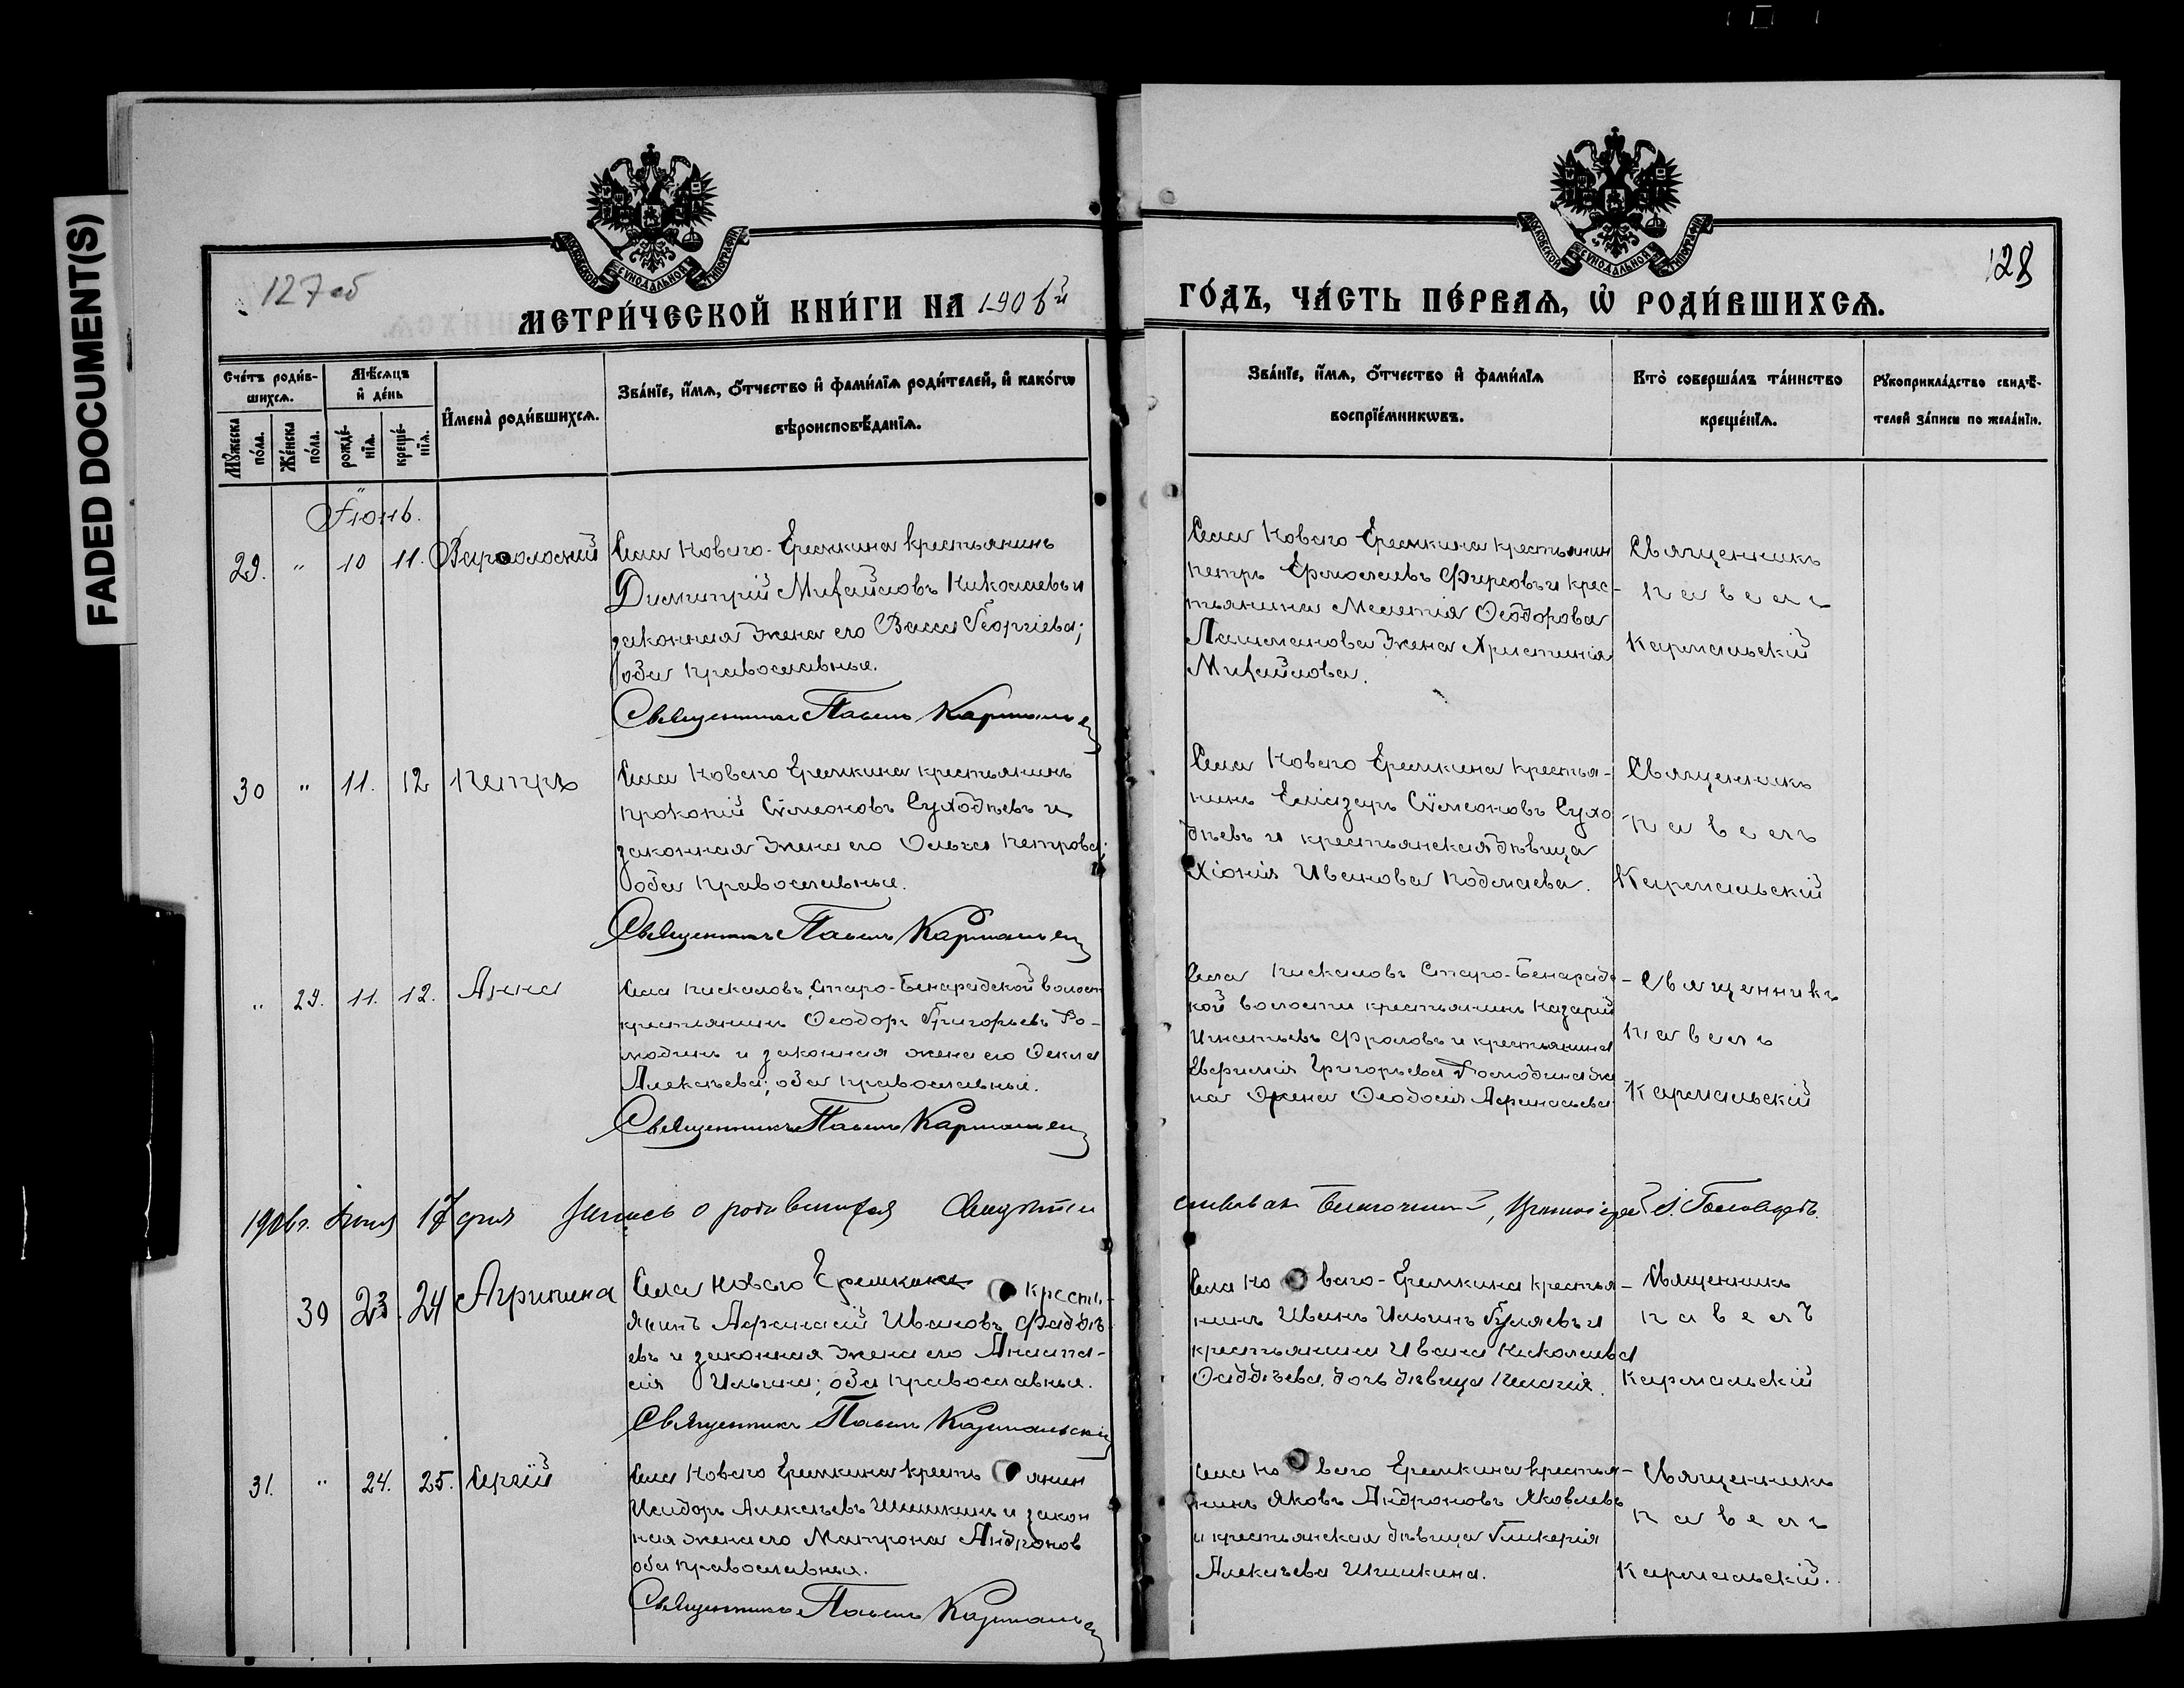 FADED DOCUMENT(S)
127 об
128
МОСКОВСКОЙ СѴНОДАЛЬНОЙ ТИПОГРАФІИ
МОСКОВСКОЙ СѴНОДАЛЬНОЙ ТИПОГРАФІИ
МЕТРИ́ЧЕСКОЙ КНИ́ГИ НА 1906й
ГО́ДЪ, ЧА́СТЬ ПЕ́РВАѦ, Ѡ РОДИ́ВШИХСѦ.
Сче́тъ роди́в-
шихсѧ.
Мꙋ́жеска по́ла.
Же́нска по́ла.
Мѣ́сѧцъ
и҆ де́нь
рожде́-нїѧ.
креще́-нїѧ.
И҆мена̀ роди́вшихсѧ.
Зва́нїе, и҆́мѧ, ѻ҆́тчество и҆ фами́лїѧ роди́телей, и҆ како́гѡ
вѣроисповѣ́данїѧ.
Зва́нїе, и҆́мѧ, ѻ҆́тчество и҆ фами́лїѧ
воспрїе́мникѡвъ.
Кто̀ соверша́лъ та́инство
креще́нїѧ.
Рꙋкоприкла́дство свидѣ́-
телей за́писи по жела́нїю.
Іюнь.
29. " 10 11. Варѳоломей
Села Новаго-Еремкина крестьянинъ
Димитрій Михайловъ Николаевъ и
законная жена его Васса Георгіева;
оба православные.
Священникъ Павелъ Кармальск
Села Новаго Еремкина крестьянин
Петръ Ермолаевъ Фирсовъ и крес-
тьянина Мелетія Ѳеодорова
Лашманова жена Христинія
Михайлова.
Священникъ
Павелъ
Кармальскій
30 " 11. 12 Петръ
Села Новаго Еремкина крестьянинъ
Прокопій Сѵмеоновъ Суходѣевъ и
законная жена его Ольга Петрова;
оба православные.
Священникъ Павелъ Кармальск
Села Новаго Еремкина крестья-
нинъ Еліазаръ Сѵмеоновъ Сухо
дѣевъ и крестьянская дѣвица
Хіонія Иванова Подмаева.
Священникъ
Павелъ
Кармальскій
" 29. 11. 12. Анна
Села Пискаловъ, Старо-Бинарадской волост
крестьянинъ Ѳеодоръ Григорьевъ Ро-
модинъ и законная жена его Ѳекла
Алексѣева; оба православные.
Священникъ Павелъ Кармальск
Села Пискаловъ Старо-Бинарадс-
кой волости крестьянинъ Назарій
Игнатьевъ Фроловъ и крестьянина
Евфимія Григорьева Ромодина
жена Ѳеодосія Аѳанасьева
Священникъ
Павелъ
Кармальскій
1906г. Іюня 17 дня запись о родившихся свидѣтель
ствовалъ Благочинный, Протоіерей
30 23. 24 Агрипина
Села Новаго Еремкина кресть-
янинъ Аѳанасій Ивановъ Фаддѣ
евъ и законная жена его Анаста-
сія Ильина; оба православные.
Священникъ Павелъ Кармальскій
Села Новаго-Еремкина крестья-
нинъ Иванъ Ильинъ Гуляевъ и
крестьянина Ивана Николаева
Ѳаддѣева дочь дѣвица Пелагія.
Священникъ
Павелъ
Кармальскій
31. " 24. 25. Сергій
Села Новаго Еремкина крестьянин
Исидоръ Алексѣевъ Шишкинъ и закон
ная жена его Матрона Андронов
оба православныя.
Священникъ Павелъ Кармальск
Села Новаго Еремкина крестья-
нинъ Яковъ Андроновъ Яковлевъ
и крестьянская дѣвица Гликерія
Алексѣева Шишкина.
Священникъ
Павелъ
Кармальскій.